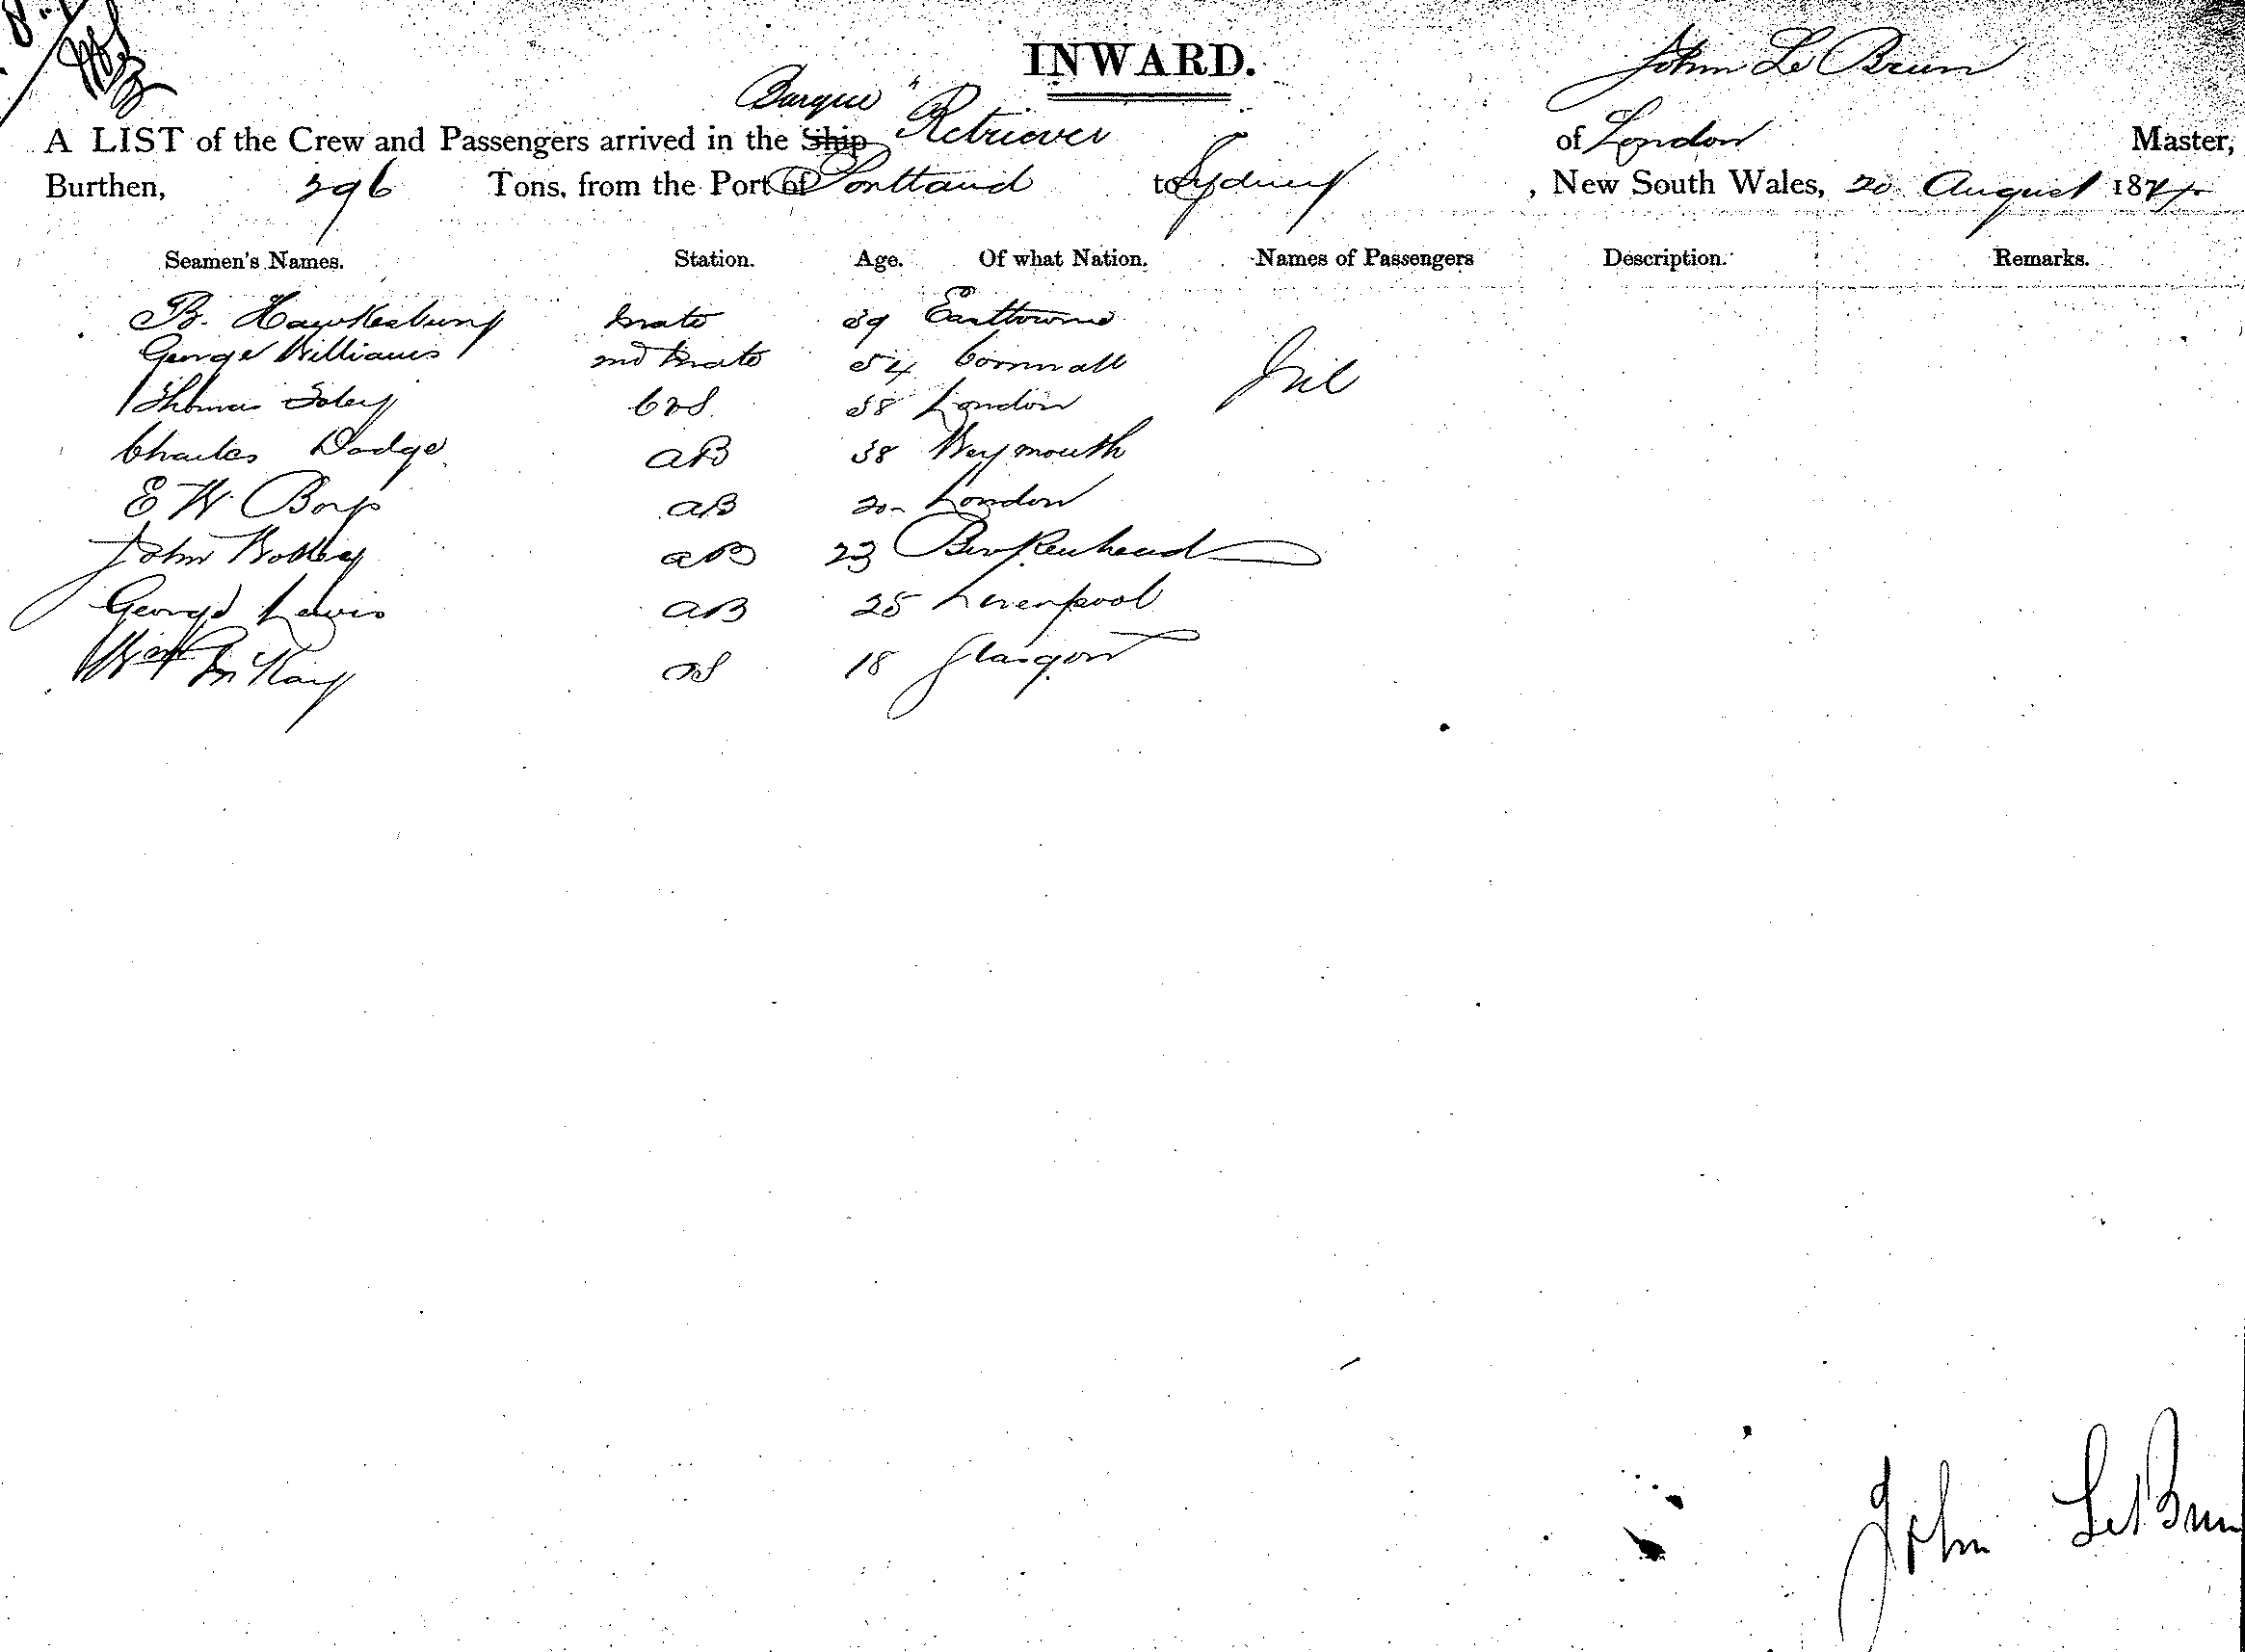 INWARD.
John Le Brun
Barque "
A LIST of the Crew and Passengers arrived in the Ship Retriever of London Master,
Burthen, 296 Tons, from the Port of Portland to Sydney, New South Wales, 20 August 1874
Seamen's Names. Station. Age. Of what Nation. Names of Passengers Description. Remarks.
B. Hawkesbury Mate 39
George Williams 2nd Mate 54 Cornwall Nil
Thomas Foley C & S 38 London
Charles Dodge AB 38 Weymouth
E W AB 20 London
John AB 23 Birkenhead
George Lewis AB 25 Liverpool
Wm McKay OS 18 Glasgow
John Le Brun